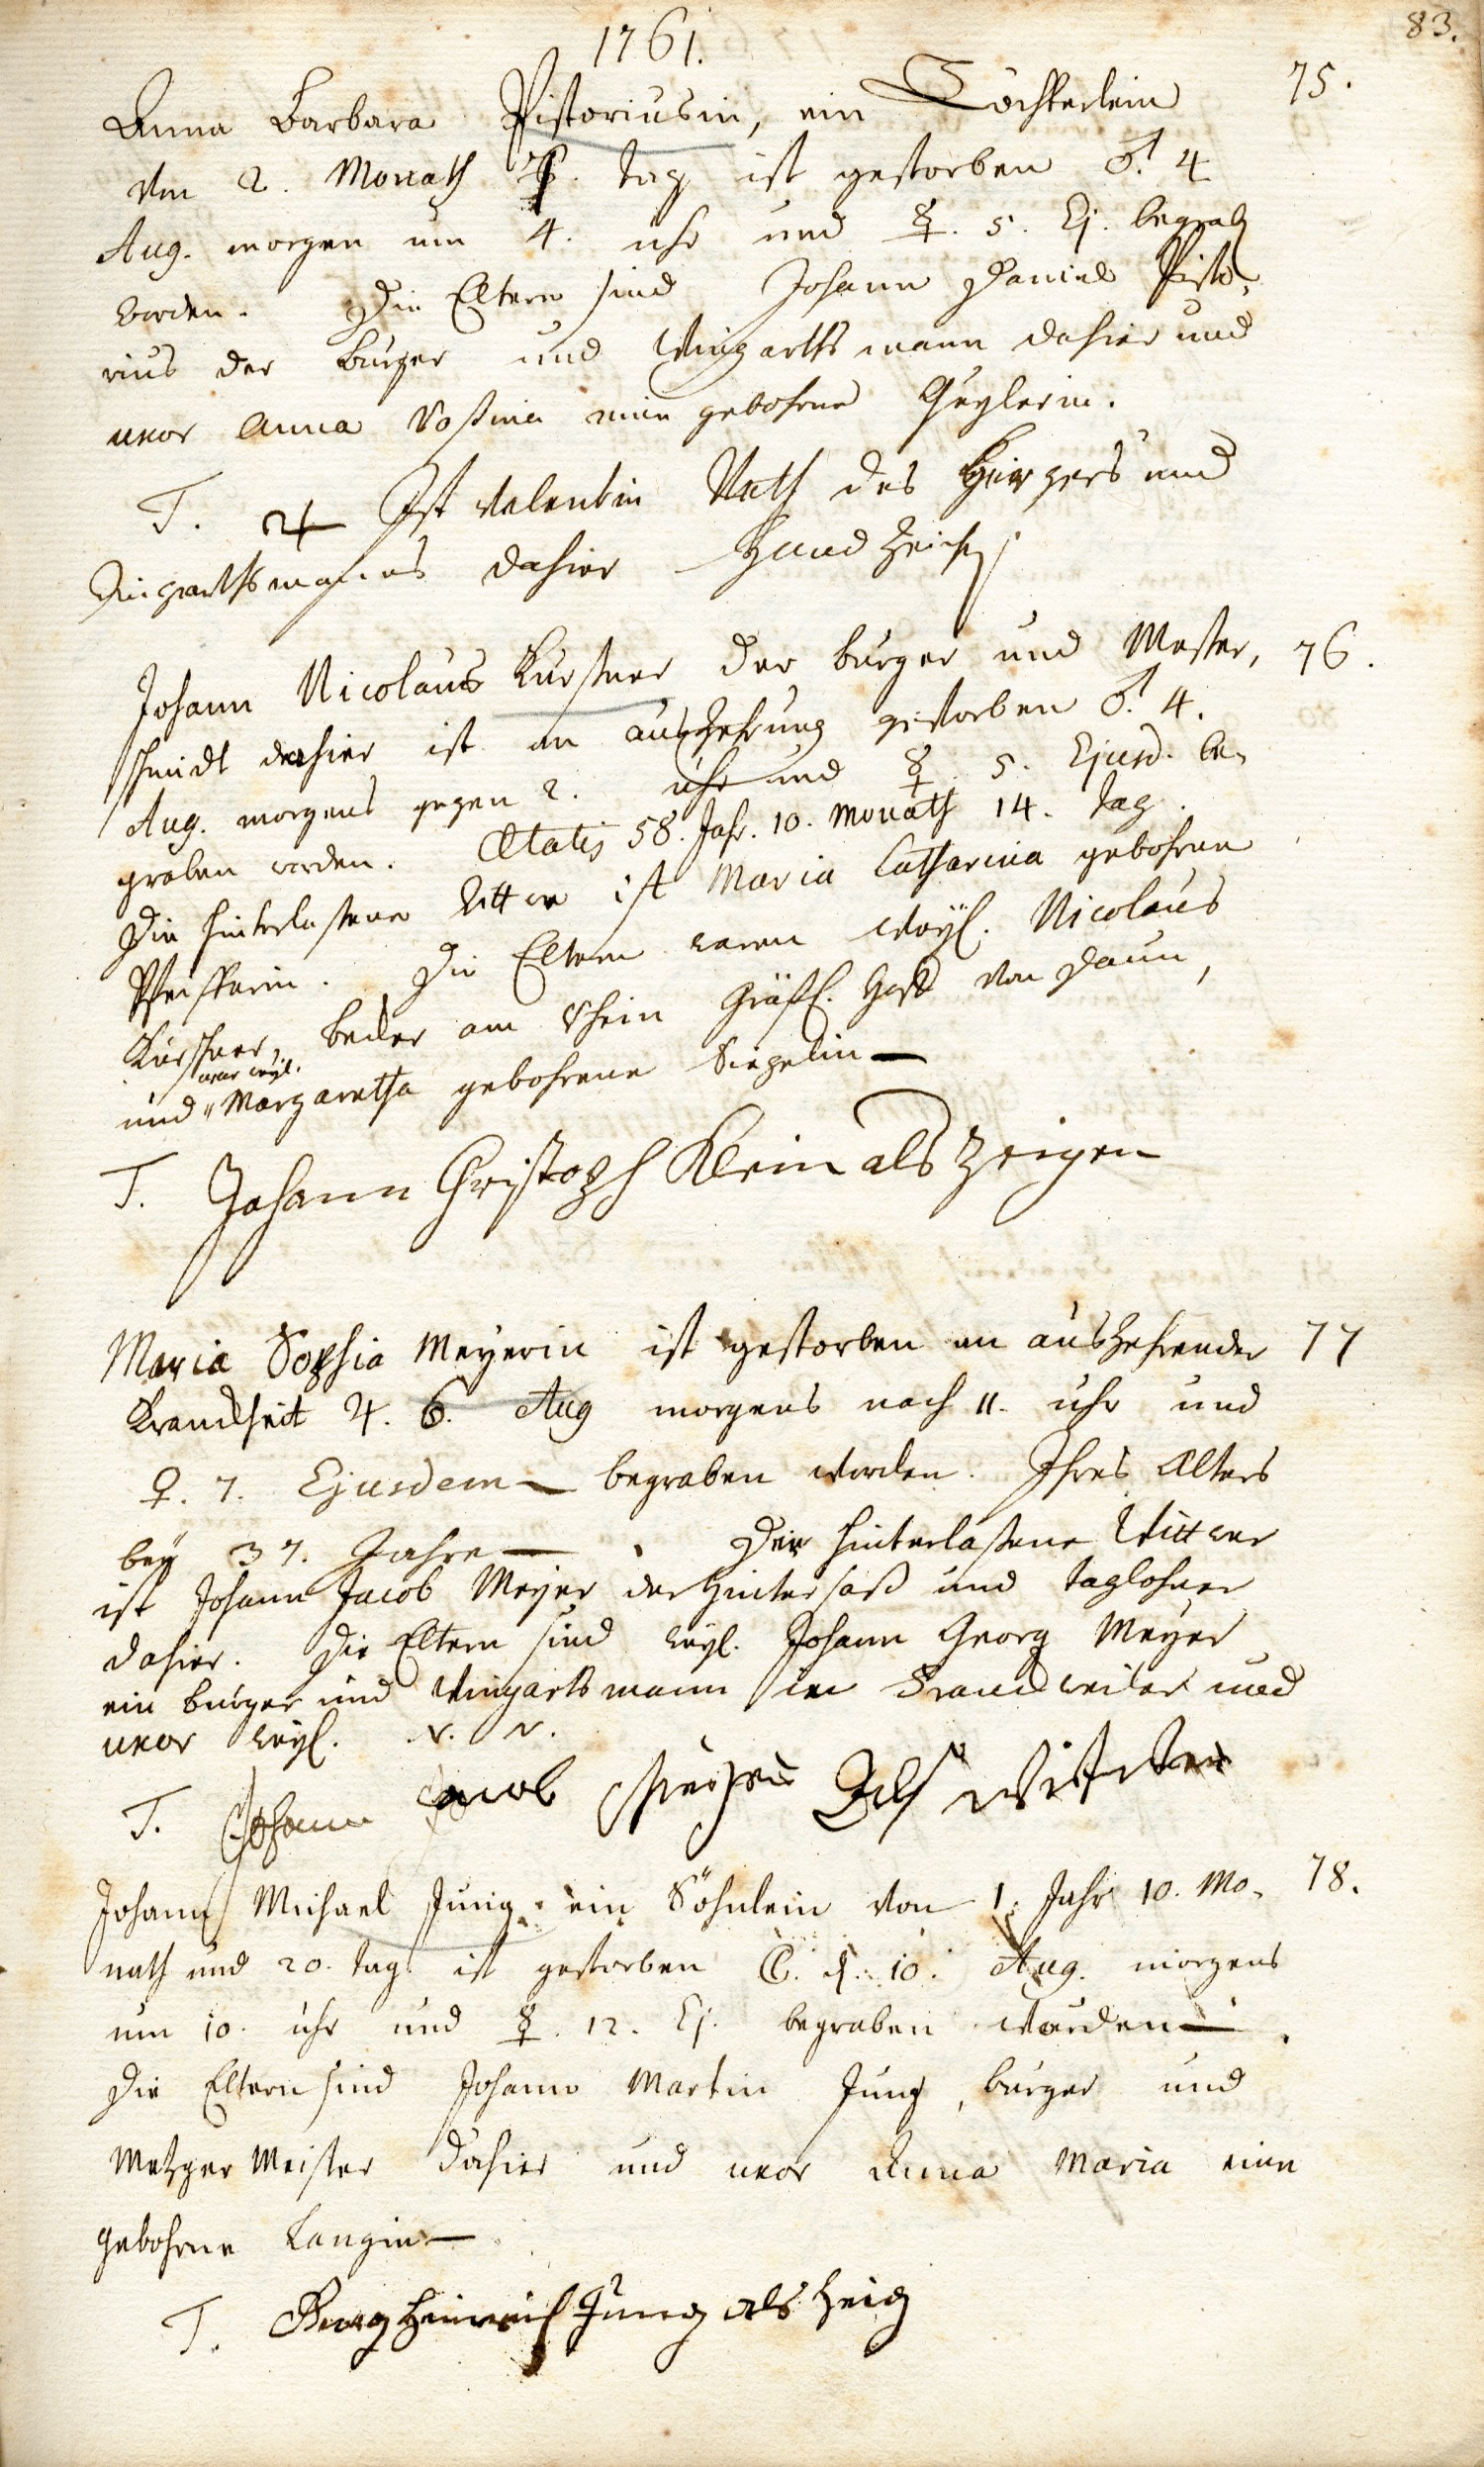 83.
1761.
Anna Barbara Pistoriusin, ein Töchterlein 75.
von 2. Monath tag ist gestorben ♂. 4
Aug. morgen um 4. uhr und ☿. 5. Ej. begrab
worden. Die Eltern sind Johann Daniel Pisto-
rius der burger und Wingarthsmann dahier und
uxor Anna Rosina eine gebohrne
T. Ist Valentin Rath des Burgers und
Wingarthsmanns dahier Hand Zeichen
Johann Nicolaus Kurstner der burger und Messer, 76.
schmidt dahier ist an auszehrung gestorben ♂. 4.
Aug. morgens gegen 2. uhr und ☿ 5. Ejusd. be-
graben worden. Ætatis 58. Jahr. 10. Monath 14. tag.
Die hinterlassene Wittwe ist Maria Catharina gebohrne
Pfeifferin. Die Eltern waren weyl. Nicolaus
Kürschner, beder am Rhein Gräfl. von Daun,
uxor weyl.
und Margaretha gebohrne Siegelin
T. Johann Christoph Klein als Zeigen
Maria Sophia Meyerin ist gestorben an auszehrender 77
Kranckheit ♃. 6. Aug morgens nach 11. uhr und
♀. 7. Ejusdem begraben worden. Ihres Alters
bey 37. Jahre. Der hinterlassene Wittwer
ist Johann Jacob Meyer der Hintersaß und taglohner
dahier. Die Eltern sind weyl. Johann Georg Meyer
ein burger und Wingartsmann in weiler und
uxor weyl. N. N.
T. Johann Jacob Meyer Als Wittwer
Johann Michael Jung ein Söhnlein von 1. Jahr 10. Mo- 78.
nath und 20. tag ist gestorben ☾. d. 10. Aug. morgens
um 10. uhr und ☿. 12. Ej. begraben worden.
Die Eltern sind Johann Martin Jung, burger und
Metzger Meister dahier und uxor Anna Maria eine
gebohrne Langin
T. Georg Heinrich Jung als Zeig